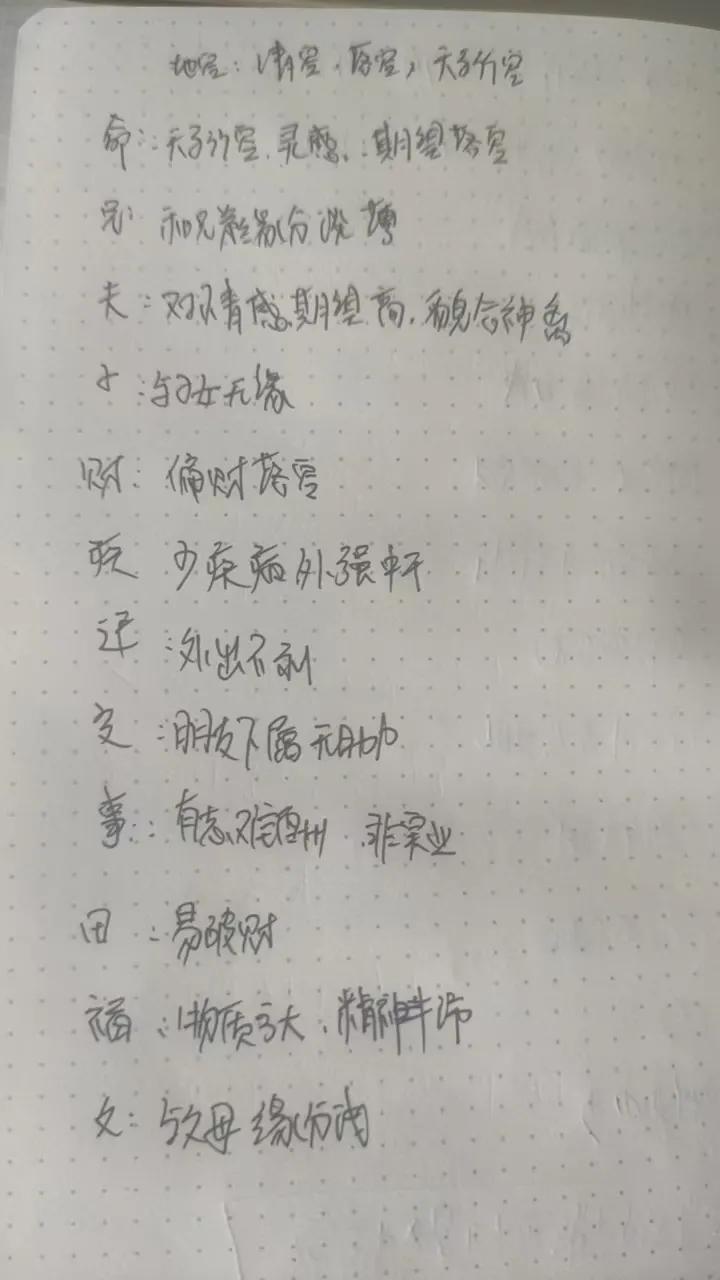 地空：清空、落空，天马行空
命：天马行空、灵感、期望落空
兄：和兄弟缘分浅薄
夫：对情感期望高，貌合神离
子：与子女无缘
财：偏财落空
疾 少疾病外强中干
迁：外出不利
交：朋友下属无助
事：有志难酬 非实业
田：易破财
福：物质，精神
父：与父母缘份浅